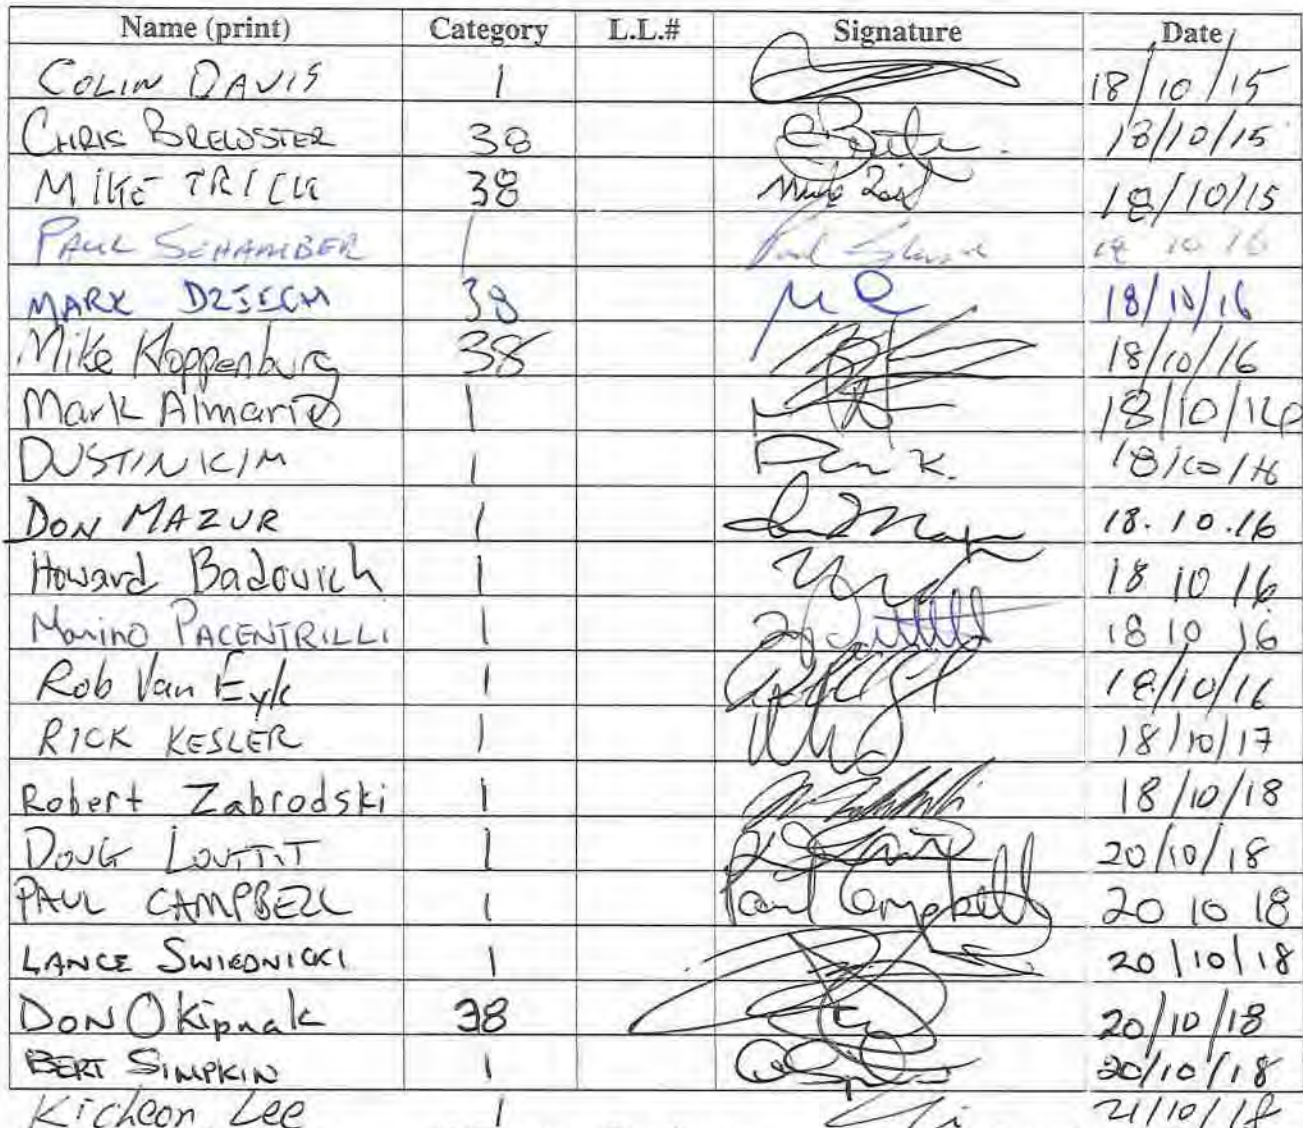 Name (print) Category L.L.# Signature Date
COLIN DAVIS 1 18/10/15
CHRIS BREWSTER 38 18/10/15
MIKE TRICK 38 18/10/15
PAUL SCHAMBER 1 18 10 16
MARK DZIECH 38 18/10/16
Mike Kloppenburg 38 18/10/16
Mark Almario 1 18/10/16
DUSTIN KIM 1 18/10/16
DON MAZUR 1 18.10.16
Howard Badovich 1 18 10 16
Marino PACENTRILLI 1 18 10 16
Rob Van Eyk 1 18/10/16
RICK KESLER 1 18/10/17
Robert Zabrodski 1 18/10/18
DOUG LOUTTIT 1 20/10/18
PAUL CAMPBELL 1 Paul Campbell 20 10 18
LANCE SWIEDNICKI 1 20/10/18
DON OKipnak 38 20/10/18
BERT SIMPKIN 1 20/10/18
Kicheon Lee 1 21/10/18